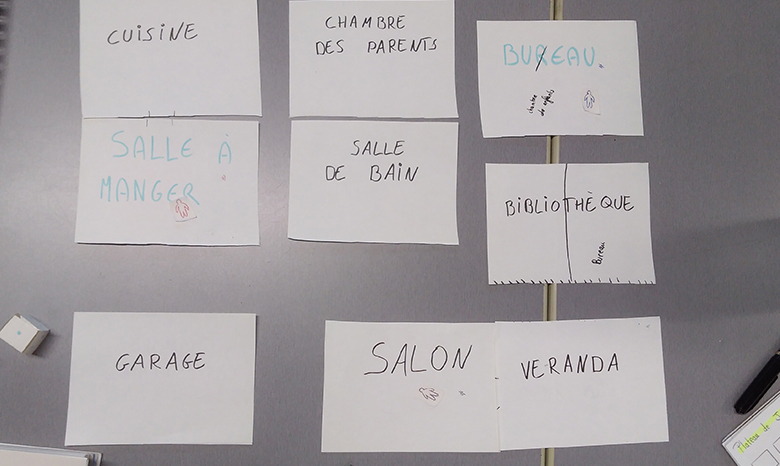 CUISINE
CHAMBRE
DES PARENTS
BUREAU.
chambre
de enfants
SALLE À
MANGER
SALLE
DE BAIN
BIBLIOTHÈQUE
Bureau
GARAGE
SALON
VERANDA
Plateau de